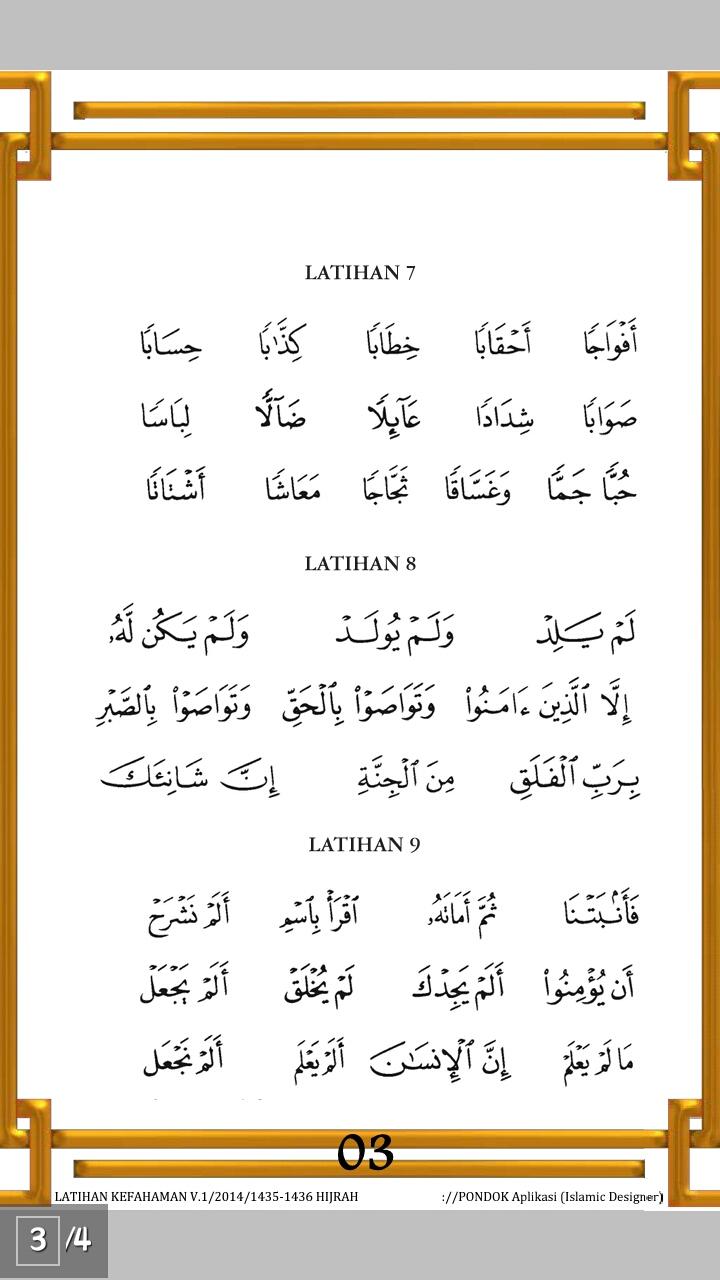 LATIHAN 7
أَفْوَاجًا أَحْقَابًا خِطَابًا كِذَّٰبًا حِسَابًا
صَوَابًا شِدَادًا عَآئِلًا ضَآلًّا لِبَاسًا
حُبًّا جَمًّا وَغَسَّاقًا ثَجَّاجًا مَعَاشًا أَشْتَاتًا
LATIHAN 8
لَمْ يَلِدْ وَلَمْ يُولَدْ وَلَمْ يَكُن لَّهُۥ
إِلَّا ٱلَّذِينَ ءَامَنُوا۟ وَتَوَاصَوْا۟ بِٱلْحَقِّ وَتَوَاصَوْا۟ بِٱلصَّبْرِ
بِرَبِّ ٱلْفَلَقِ مِنَ ٱلْجِنَّةِ إِنَّ شَانِئَكَ
LATIHAN 9
فَأَنۢبَتْنَا ثُمَّ أَمَاتَهُۥ ٱقْرَأْ بِٱسْمِ أَلَمْ نَشْرَحْ
أَن يُؤْمِنُوا۟ أَلَمْ يَجِدْكَ لَمْ يُخْلَقْ أَلَمْ يَجْعَلْ
مَا لَمْ يَعْلَمْ إِنَّ ٱلْإِنسَٰنَ أَلَمْ يَعْلَم أَلَمْ نَجْعَل
03
LATIHAN KEFAHAMAN V.1/2014/1435-1436 HIJRAH ://PONDOK Aplikasi (Islamic Designer)
3 /4